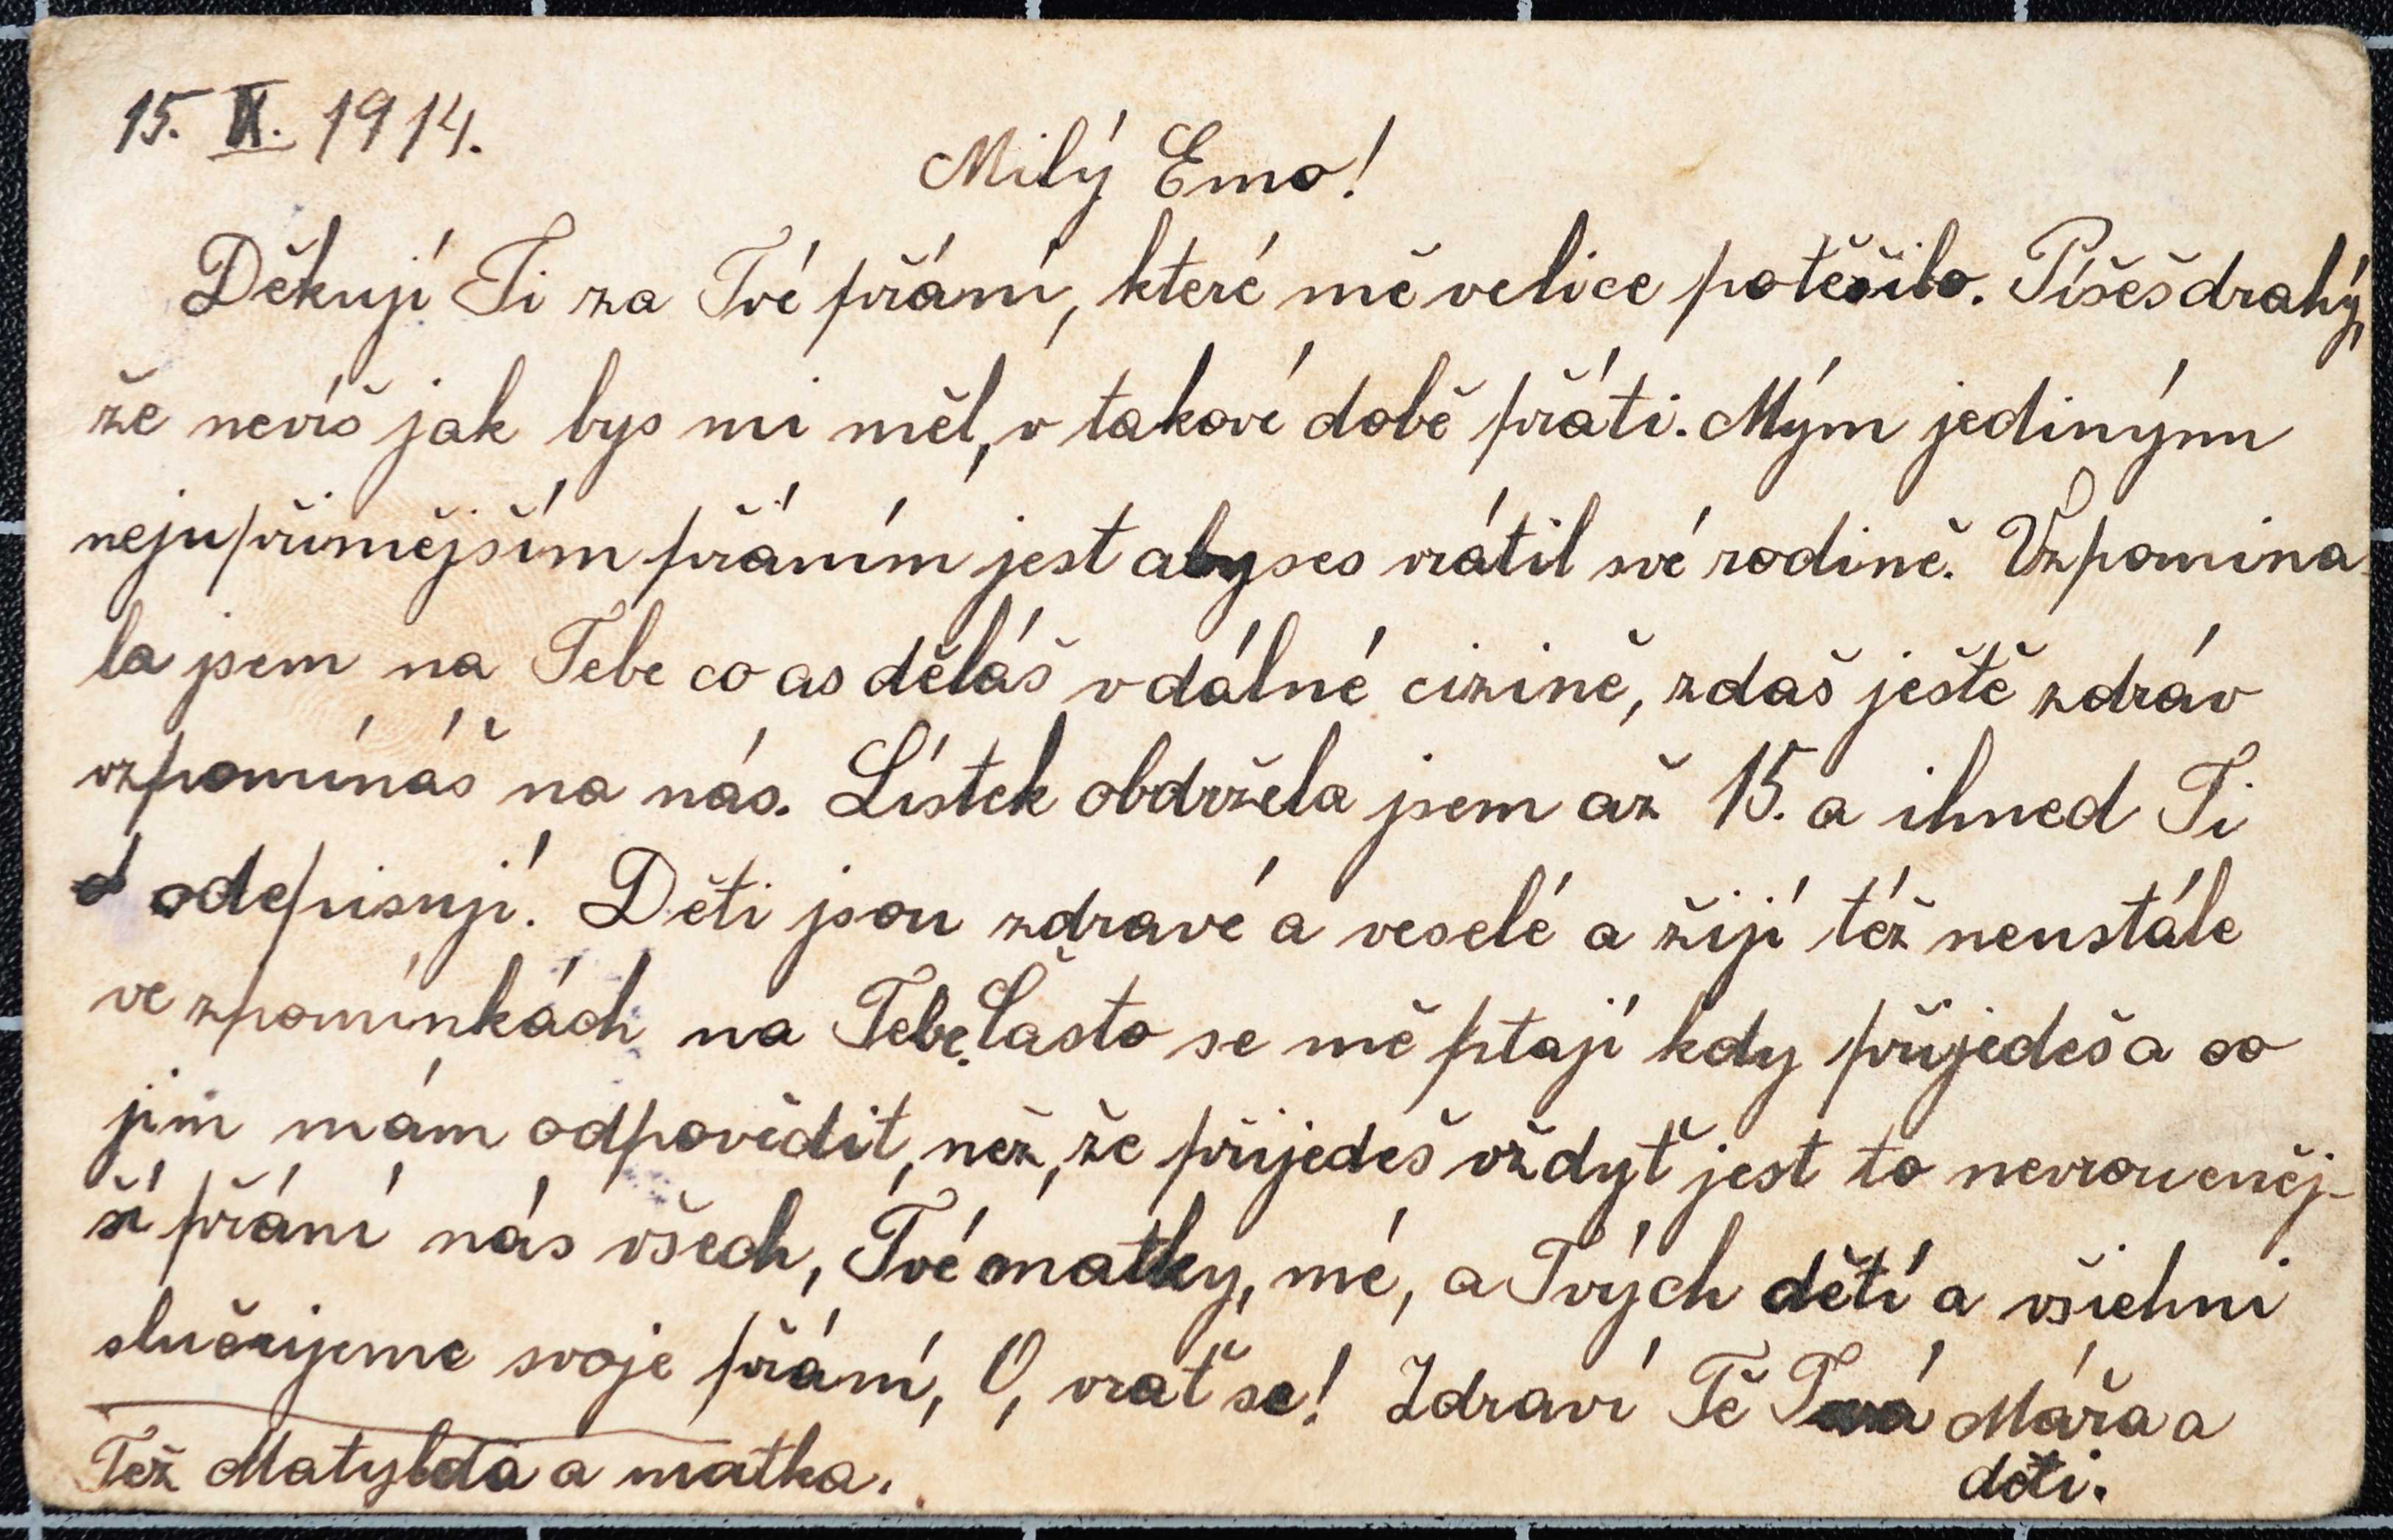 15. X. 1914.
Milý Emo!
Děkují Ti za Tvé přání, které mě velice potěšilo. Píšeš drahý,
že nevíš jak bys mi měl, v takové době přáti. Mým jediným
nejupřimějším přáním jest abyses vrátil své rodině. Vzpomina-
la jsem na Tebe co as děláš v dálné cizině, zdaš ještě zdráv
vzpomínáš na nás. Lístek obdržela jsem až 15. a ihned Ti
odepisují. Děti jsou zdravé a veselé a žijí též neustále
ve zpomínkách na Tebe. Často se mě ptají kdy přijedeš a co
jim mám odpovědit, než, že přijedeš vždyť jest to nevrouеněj-
ší přání nás všech, Tvé matky, mé, a Tvých dětí a všichni
slučujeme svoje přání, O, vrať se! Zdraví Tě Tvá Mářa a
děti.
Též Matylda a matka.